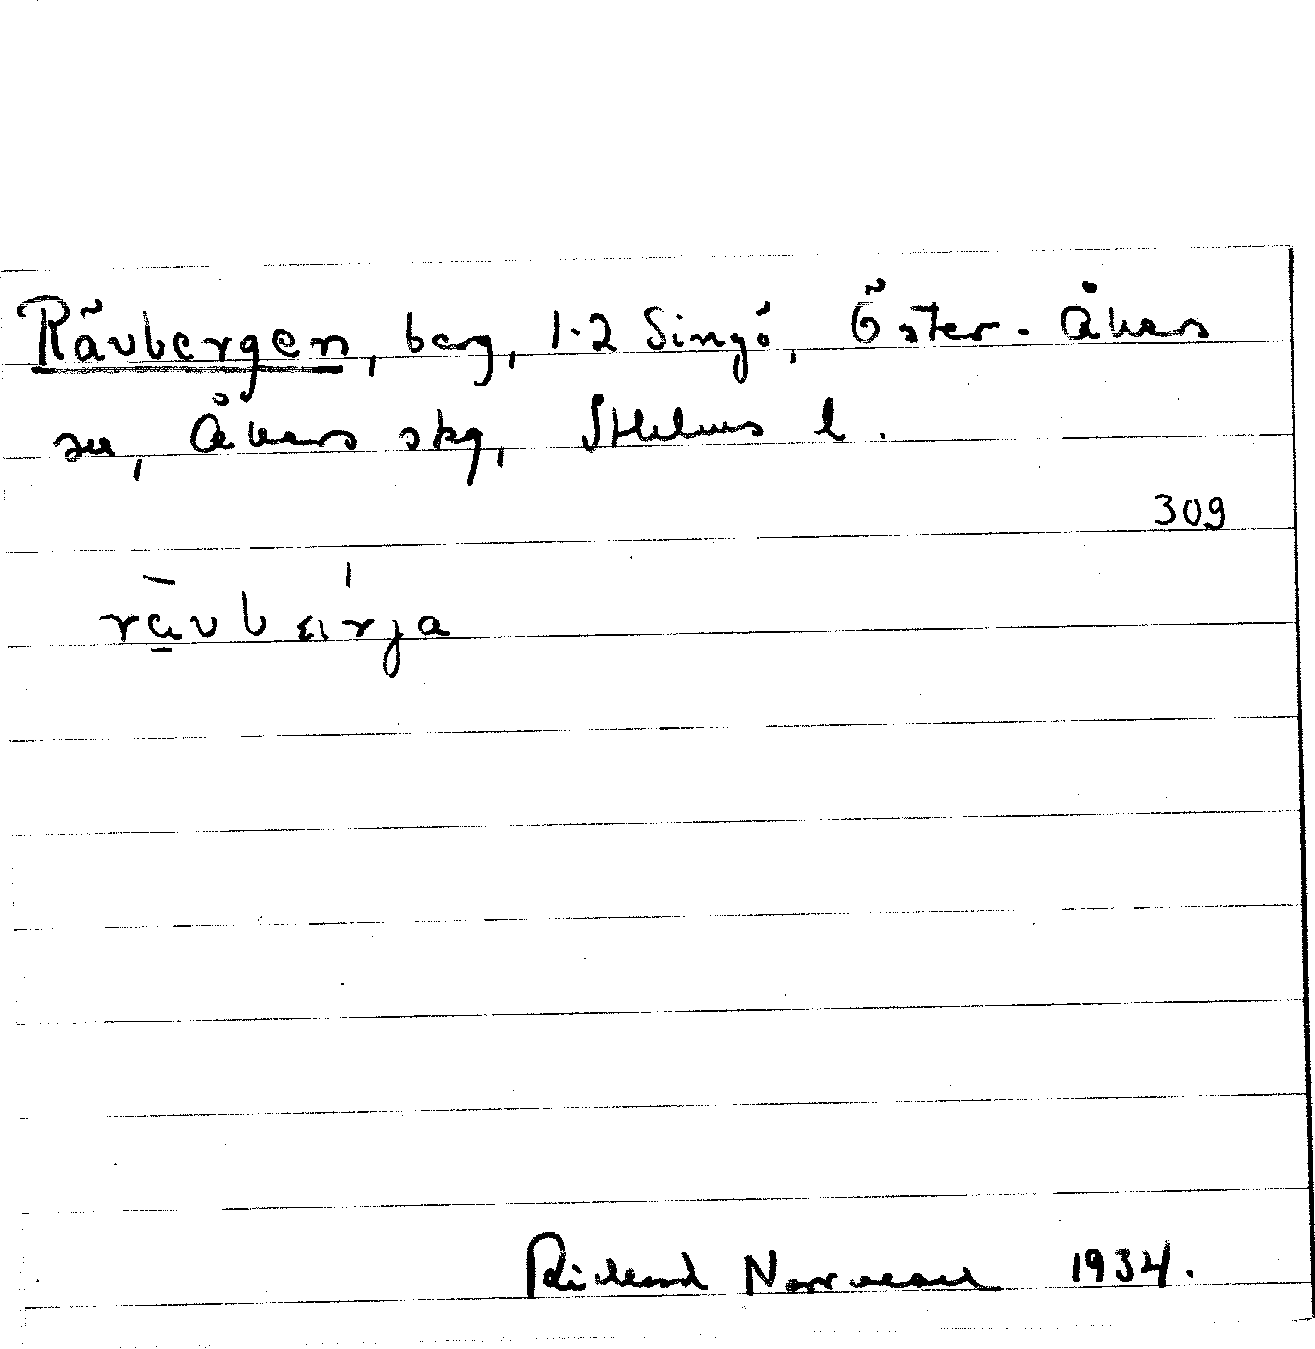 Rävbergen, berg, 1-2 Singö, Öster-Åkers
sn, Åkers skg, Sthlms l.
309
rävbärja
Rickard Norrman 1934.